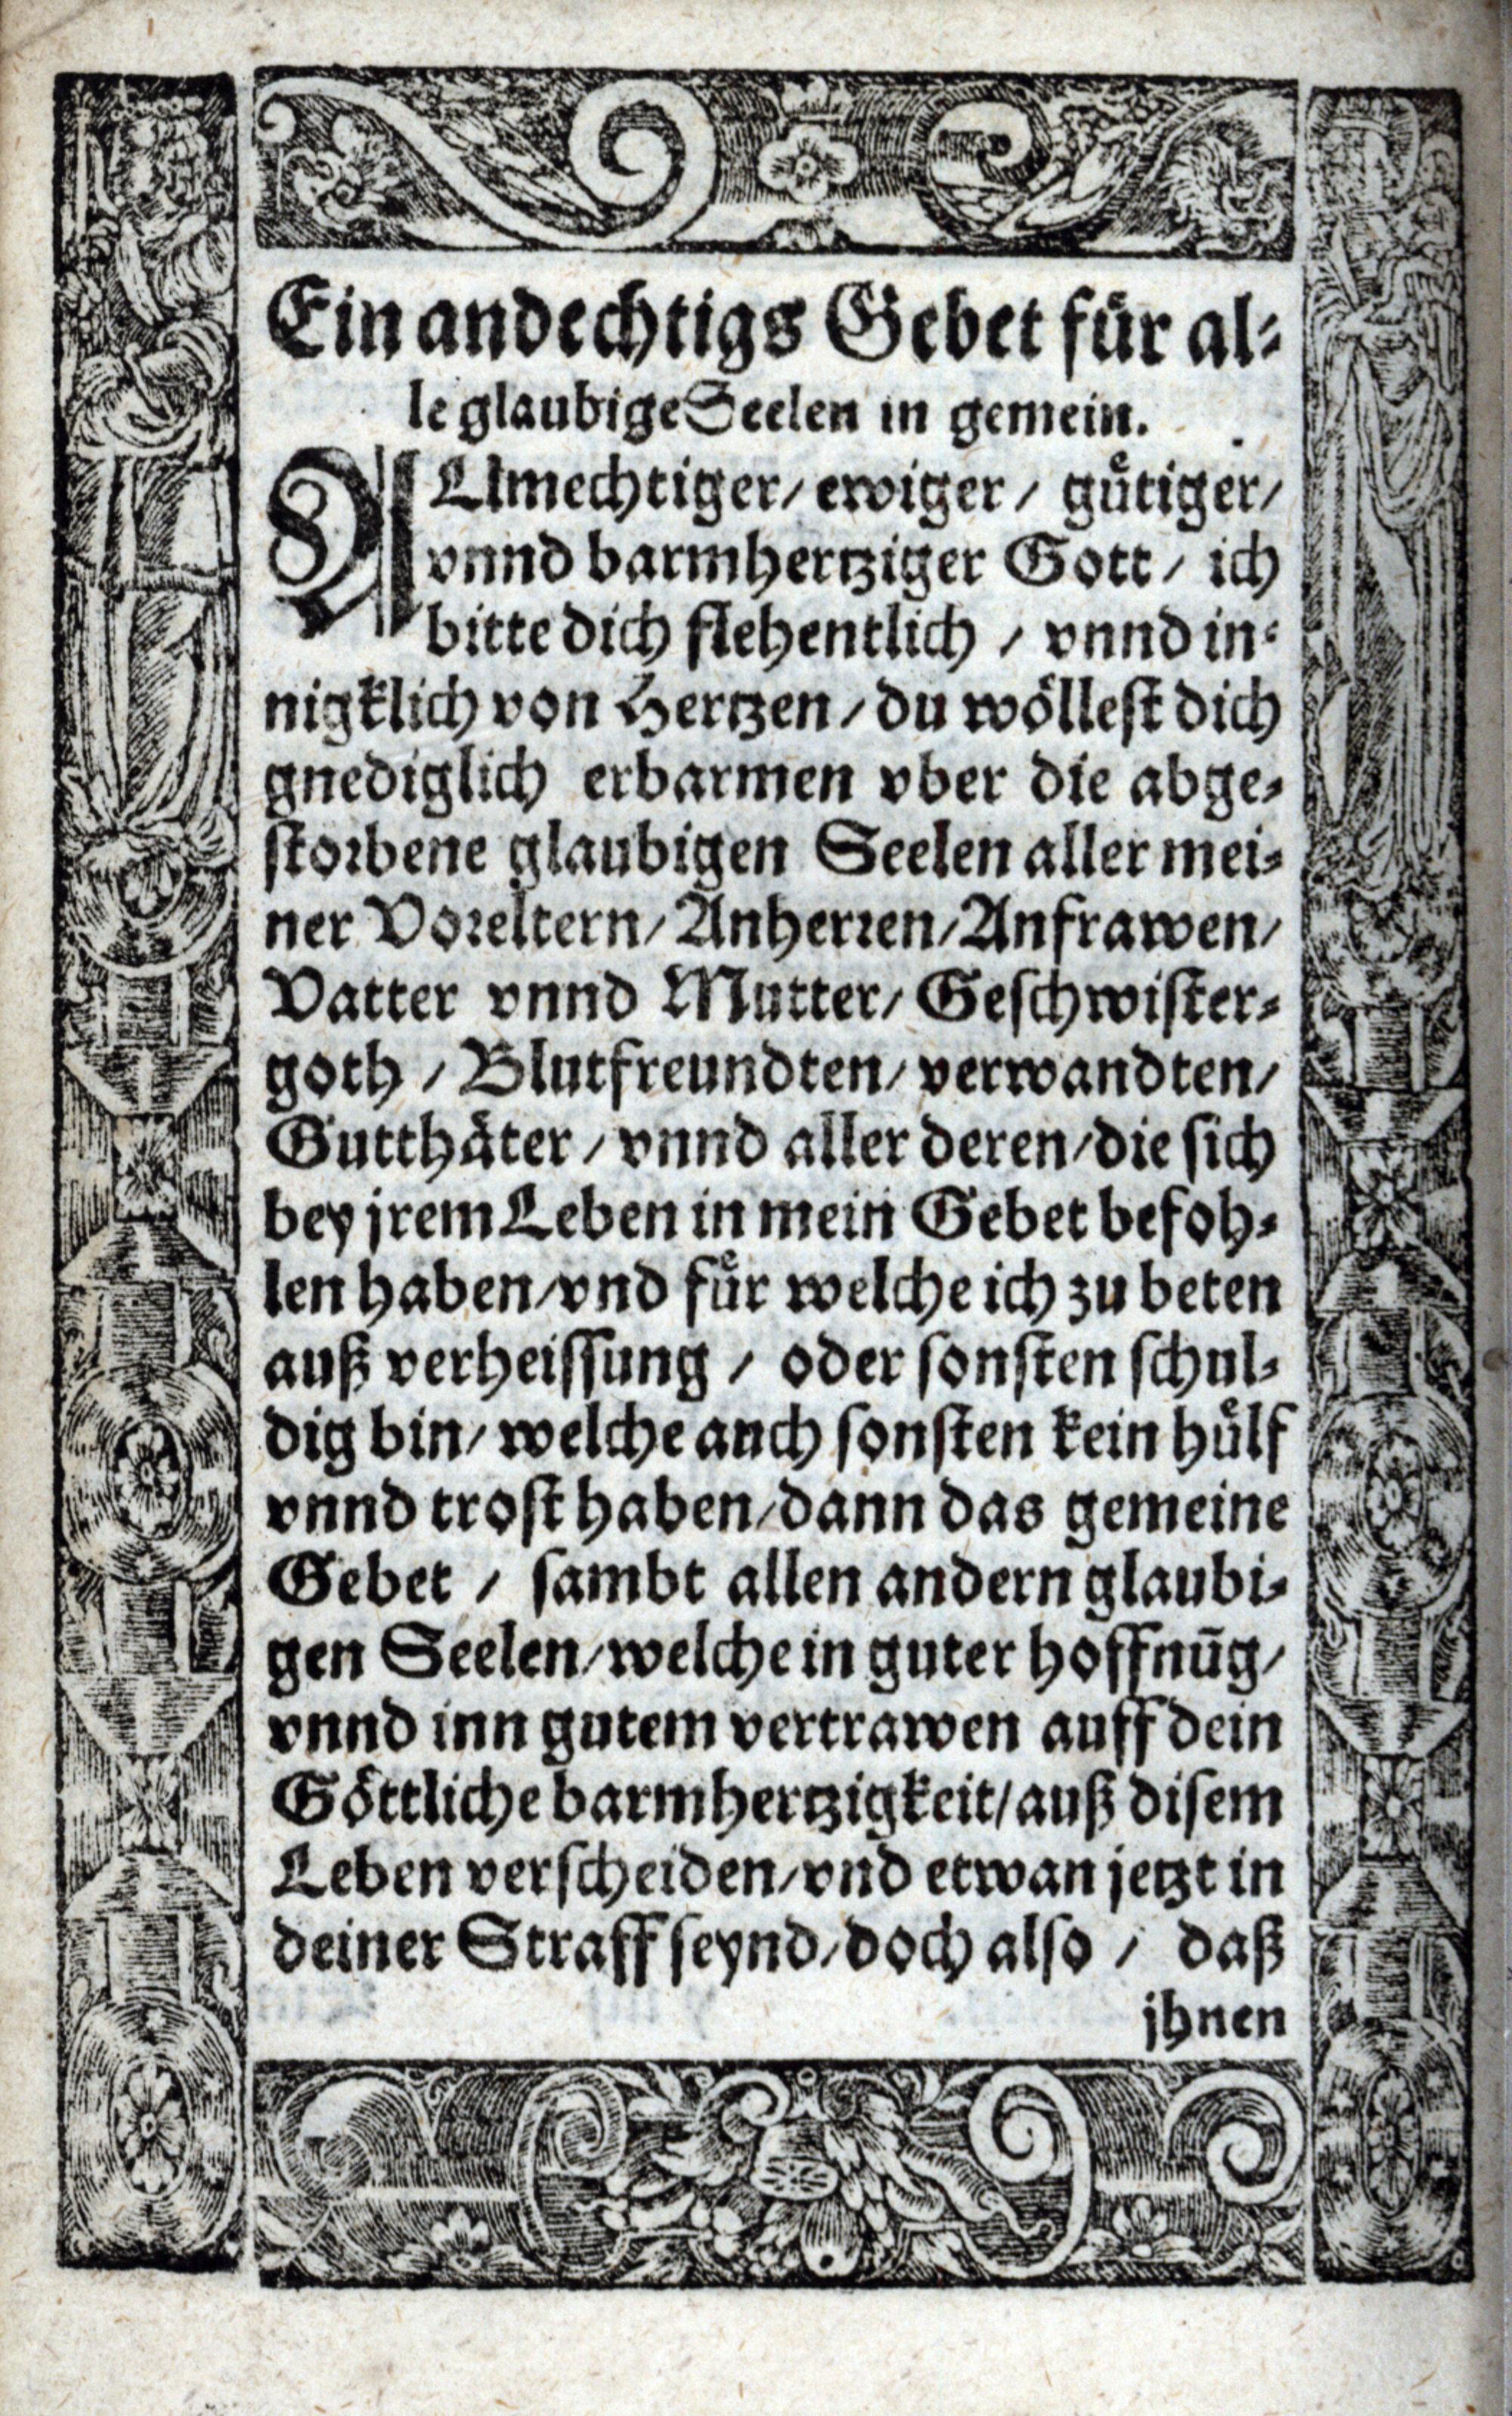 Ein andechtigs Gebet fuͤr al⸗
le glaubige Seelen in gemein.
ALlmechtiger/ ewiger / guͤtiger/
vnnd barmhertziger Gott/ ich
bitte dich flehentlich / vnnd in⸗
nigklich von Hertzen / du woͤllest dich
gnediglich erbarmen vber die abge⸗
storbene glaubigen Seelen aller mei⸗
ner Voreltern/ Anherren/ Anfrawen/
Vatter vnnd Mutter/ Geschwister⸗
goth / Blutfreundten/ verwandten/
Gutthaͤter / vnnd aller deren/ die sich
bey jrem Leben in mein Gebet befoh⸗
len haben/ vnd fuͤr welche ich zu beten
auß verheissung / oder sonsten schul⸗
dig bin/ welche auch sonsten kein huͤlf
vnnd trost haben/ dann das gemeine
Gebet / sambt allen andern glaubi⸗
gen Seelen/ welche in guter hoffnūg/
vnnd inn gutem vertrawen auff dein
Goͤttliche barmhertzigkeit/ auß disem
Leben verscheiden/ vnd etwan jetzt in
deiner Straff seynd/ doch also / daß
jhnen